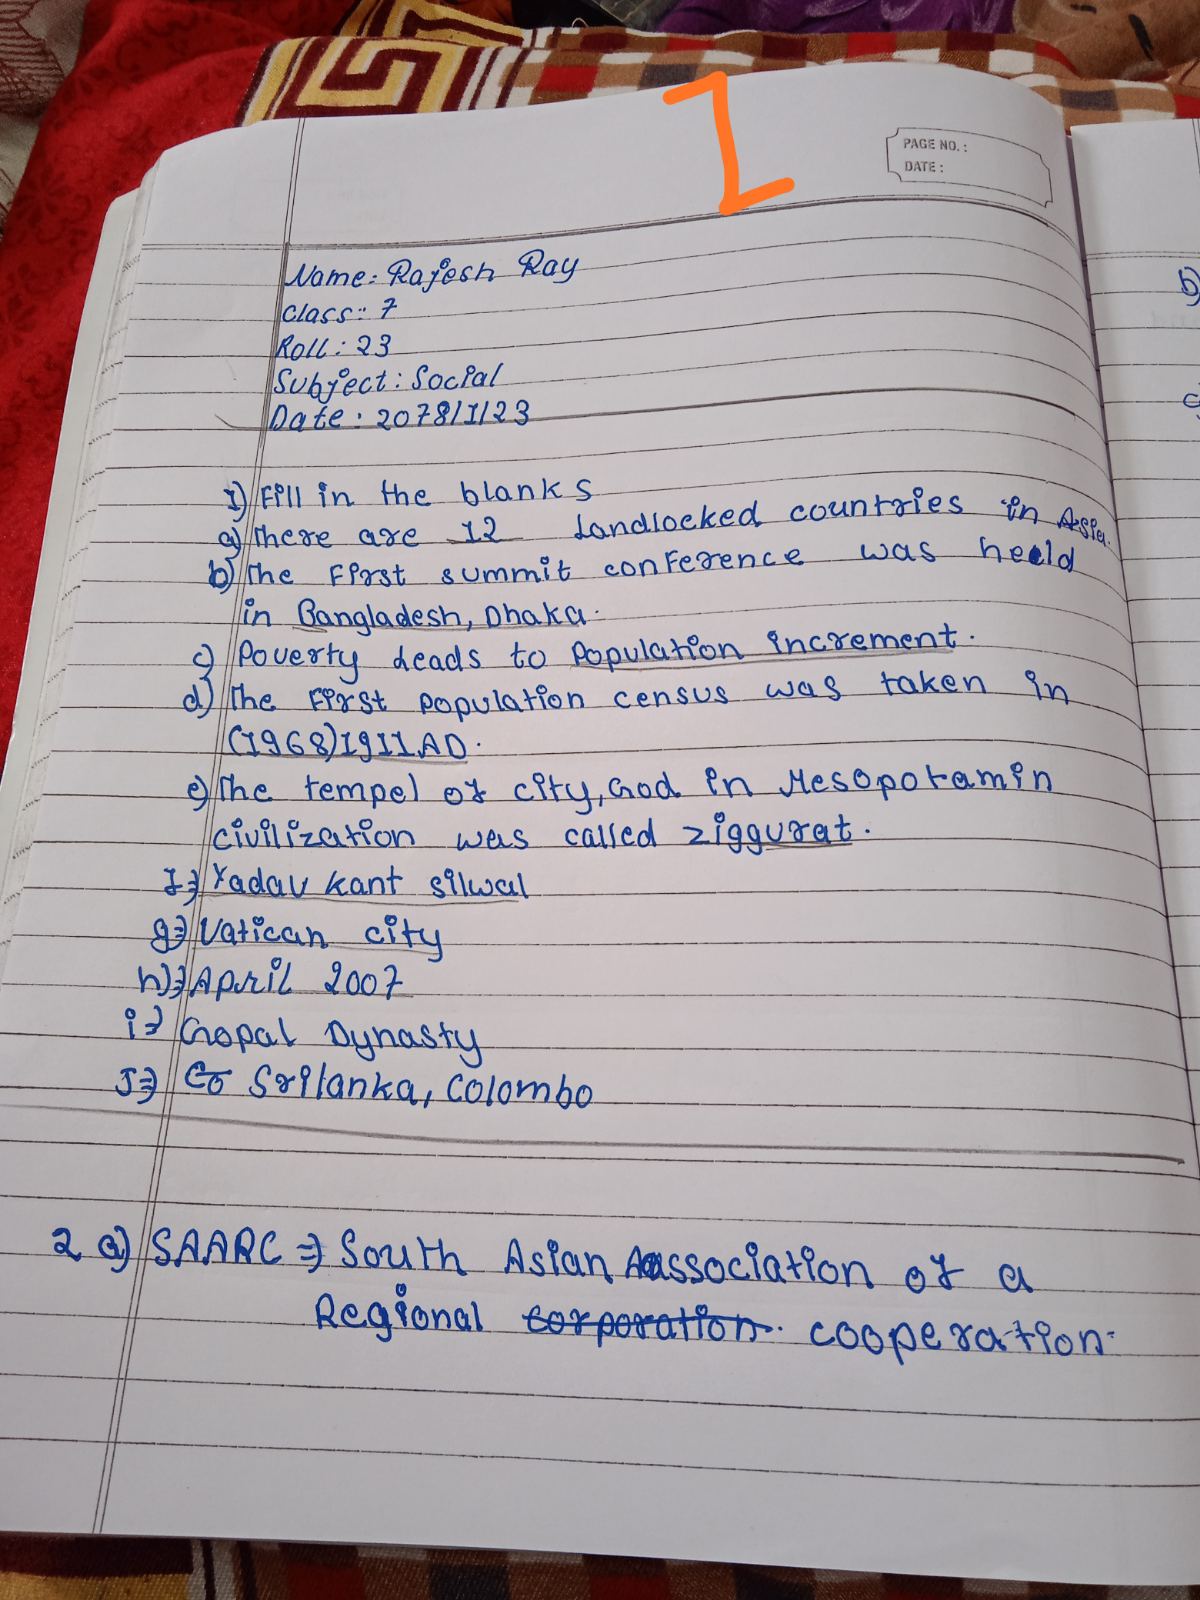 I
PAGE NO.:
DATE:
Name: Rajesh Ray
Class:- 7
Roll: 23
Subject: Social
Date: 2078/1/23
1) Fill in the blanks
a) There are 12 Landlocked countries in Asia.
b) The First summit conference was heeld
in Bangladesh, Dhaka.
c) Poverty Leads to population increment.
d) The First population census was taken in
(1968)1911.AD.
e) The tempel of city, God in Mesopotamin
civilization was called ziggurat.
f⇒ Yadav kant silwal
g⇒ Vatican city
h)⇒ April 2007
i⇒ Gopal Dynasty
J⇒ Co Srilanka, Colombo
2 a) SAARC ⇒ South Asian Aassociation of a
Regional corporation. cooperation.
b)
c